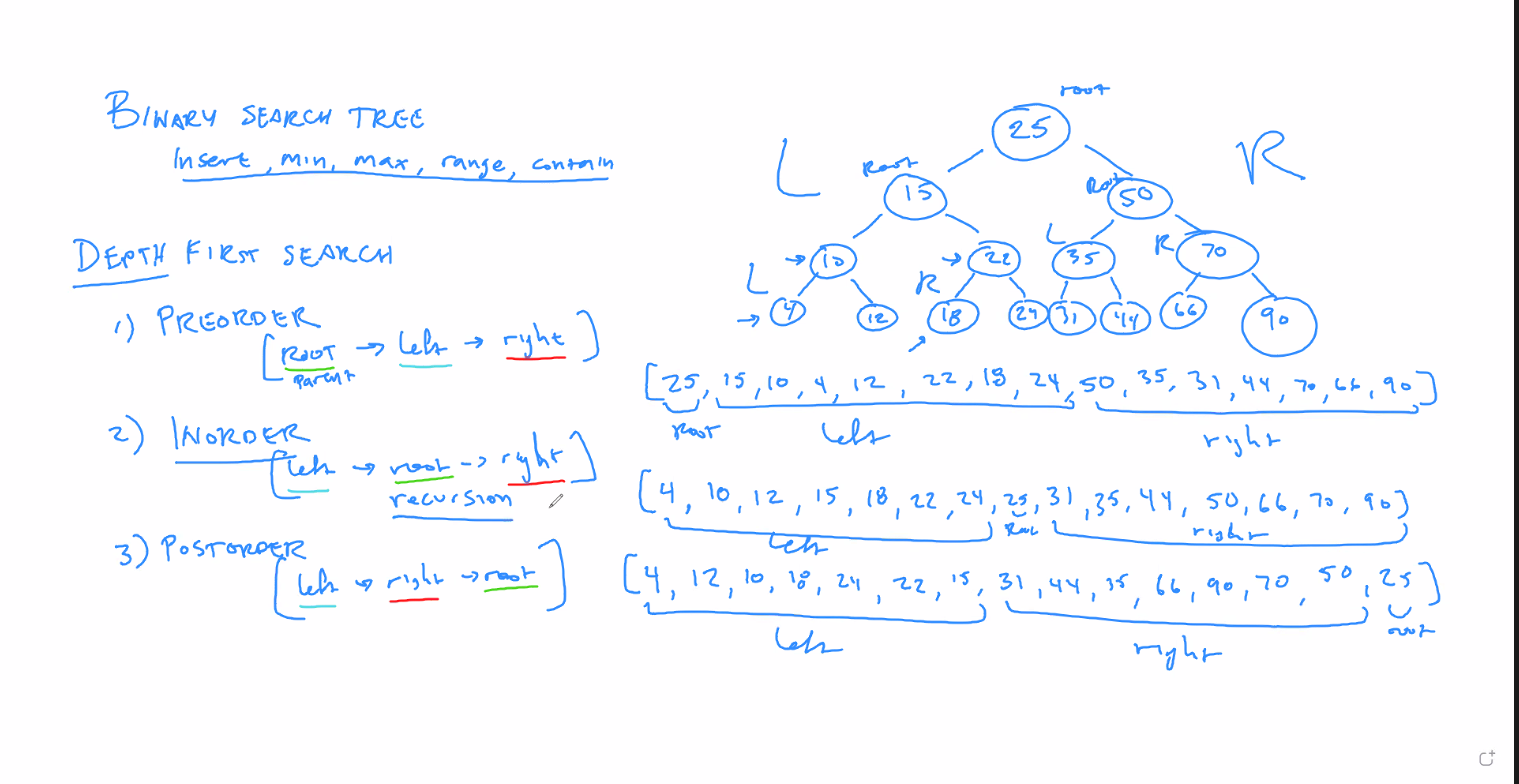 BINARY SEARCH TREE
Insert, min, max, range, contain
DEPTH FIRST SEARCH
1) PREORDER
[ROOT → left → right]
Parent
2) INORDER
[left → root -> right]
recursion
3) POSTORDER
[left → right → root]
root
25
L
R
Root
15
Root
50
→ 10
→ 22
L
35
R
70
L
→ 4
12
R
18
24
31
44
66
90
[25, 15, 10, 4, 12, 22, 18, 24, 50, 35, 31, 44, 70, 66, 90]
Root
left
right
[4, 10, 12, 15, 18, 22, 24, 25, 31, 35, 44, 50, 66, 70, 90]
left
Root
right
[4, 12, 10, 18, 24, 22, 15, 31, 44, 35, 66, 90, 70, 50, 25]
left
right
root